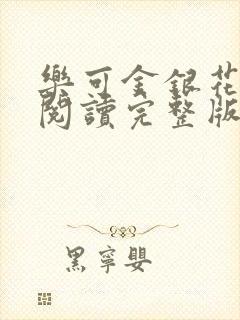 樂可金銀花
閱讀完整版
黑寧嬰